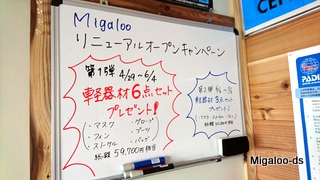 Migaloo
リニューアルオープンキャンペーン
第1弾 4/29~6/4
軽器材6点セット
プレゼント!
・マスク ・グローブ
・フィン ・ブーツ
・スノーケル ・バッグ
総額 59,700円相当
第2弾
軽器材3点セット
プレゼント!
PADI
Migaloo-ds